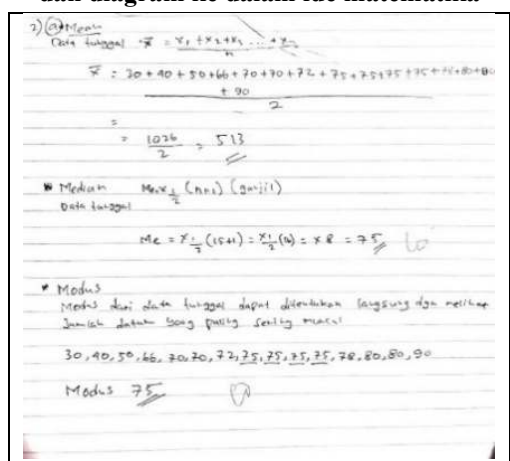 dan diagram ke dalam ide matematika
2) a) Mean
Data tunggal x̄ = x₁ + x₂ + x₃ ... + xₙ / n
x̄ = 30 + 40 + 50 + 66 + 70 + 70 + 72 + 75 + 75 + 75 + 75 + 78 + 80 + 80
+ 90
2
=
= 1026 / 2 = 513
* Median Me = x ½ (n+1) (ganjil)
Data tunggal
Me = x ½ (15+1) = x ½ (16) = x 8 = 75
* Modus
Modus dari data tunggal dapat ditentukan langsung dgn melihat
Jumlah datum yang paling sering muncul
30, 40, 50, 66, 70, 70, 72, 75, 75, 75, 75, 78, 80, 80, 90
Modus 75